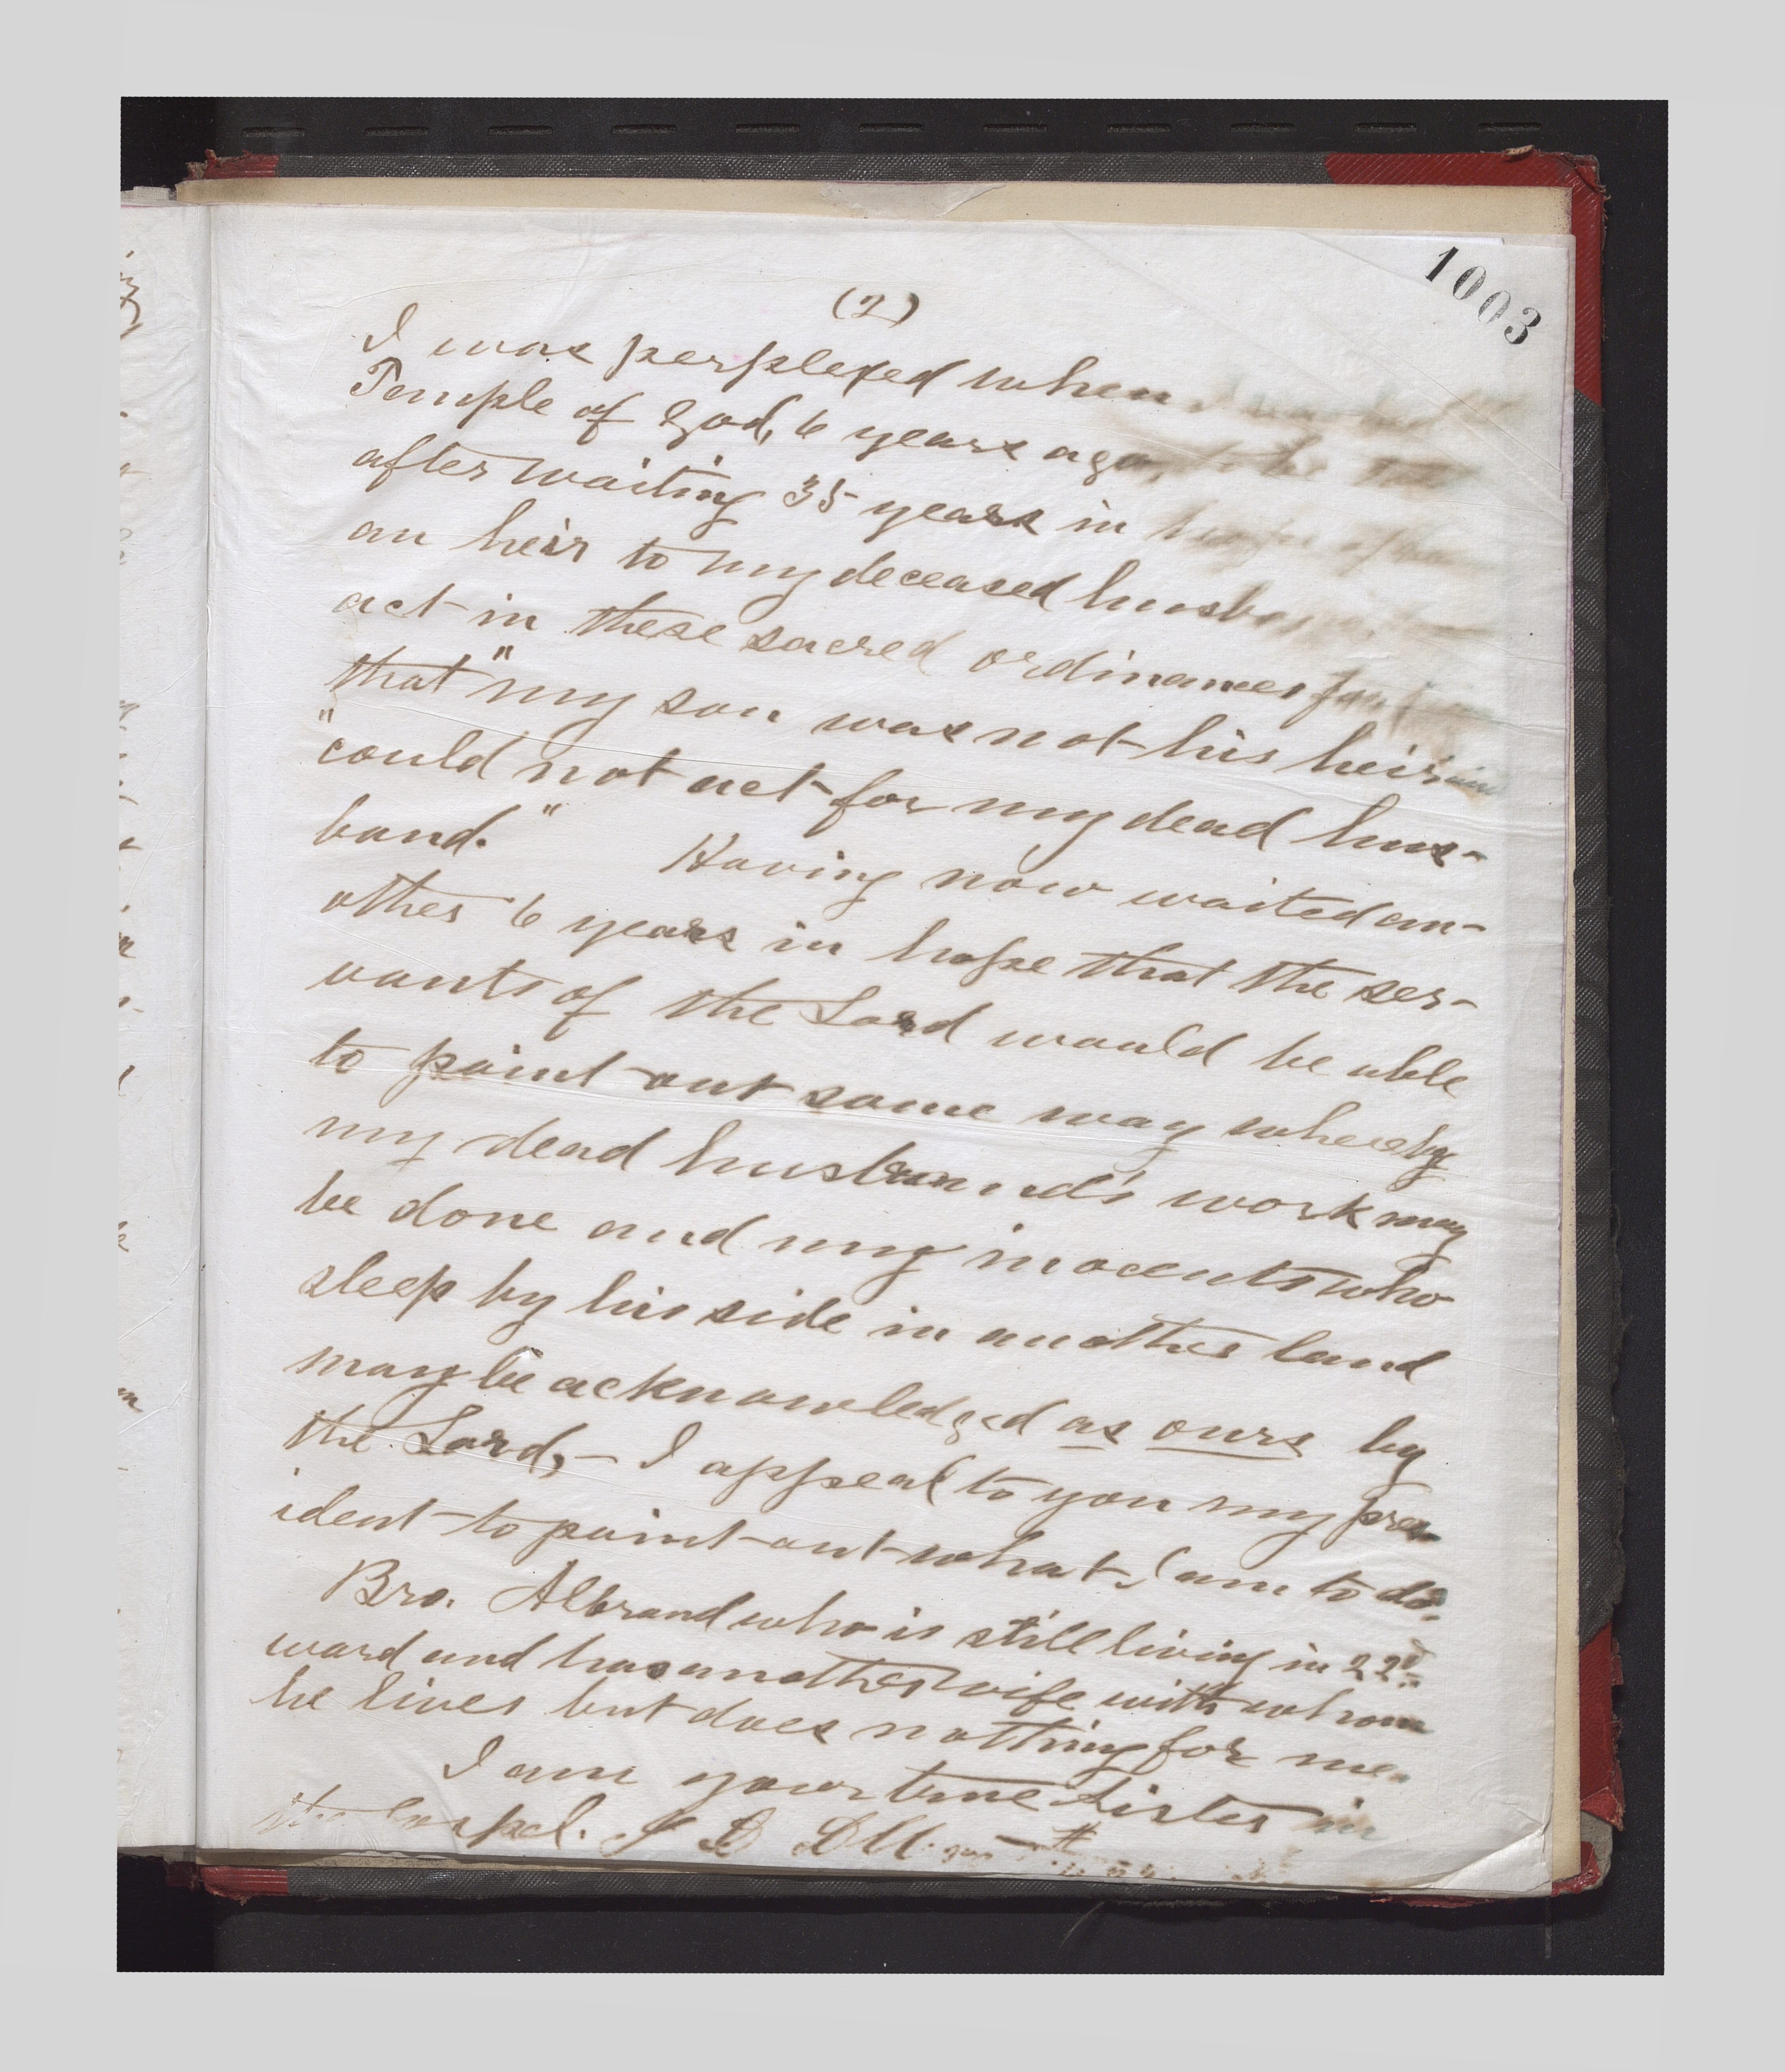 1003
(2)
I was perplexed when I reached the
Temple of God, 6 years ago, to be told
after waiting 35 years in hopes of
an heir to my deceased husband
act in these sacred ordinances for
that "my son was not his heir and
"could not act for my dead hus-
band." Having now waited an-
other 6 years in hope that the ser-
vants of the Lord would be able
to point out some way whereby
my dead husband's work may
be done and my inocents who
sleep by his side in another land
may be acknowledged as ours by
the Lord,- I appeal to you my pres-
ident to point out what I am to do.
Bro. Albrand who is still living in 22d
ward and has another wife with whom
he lives but does nothing for me.
I am your true Sister in
the Gospel.